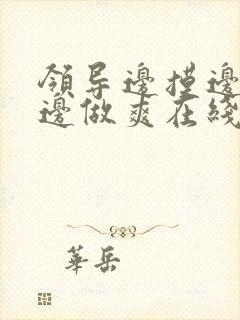 領导邊摸邊
邊做爽在綫
華岳